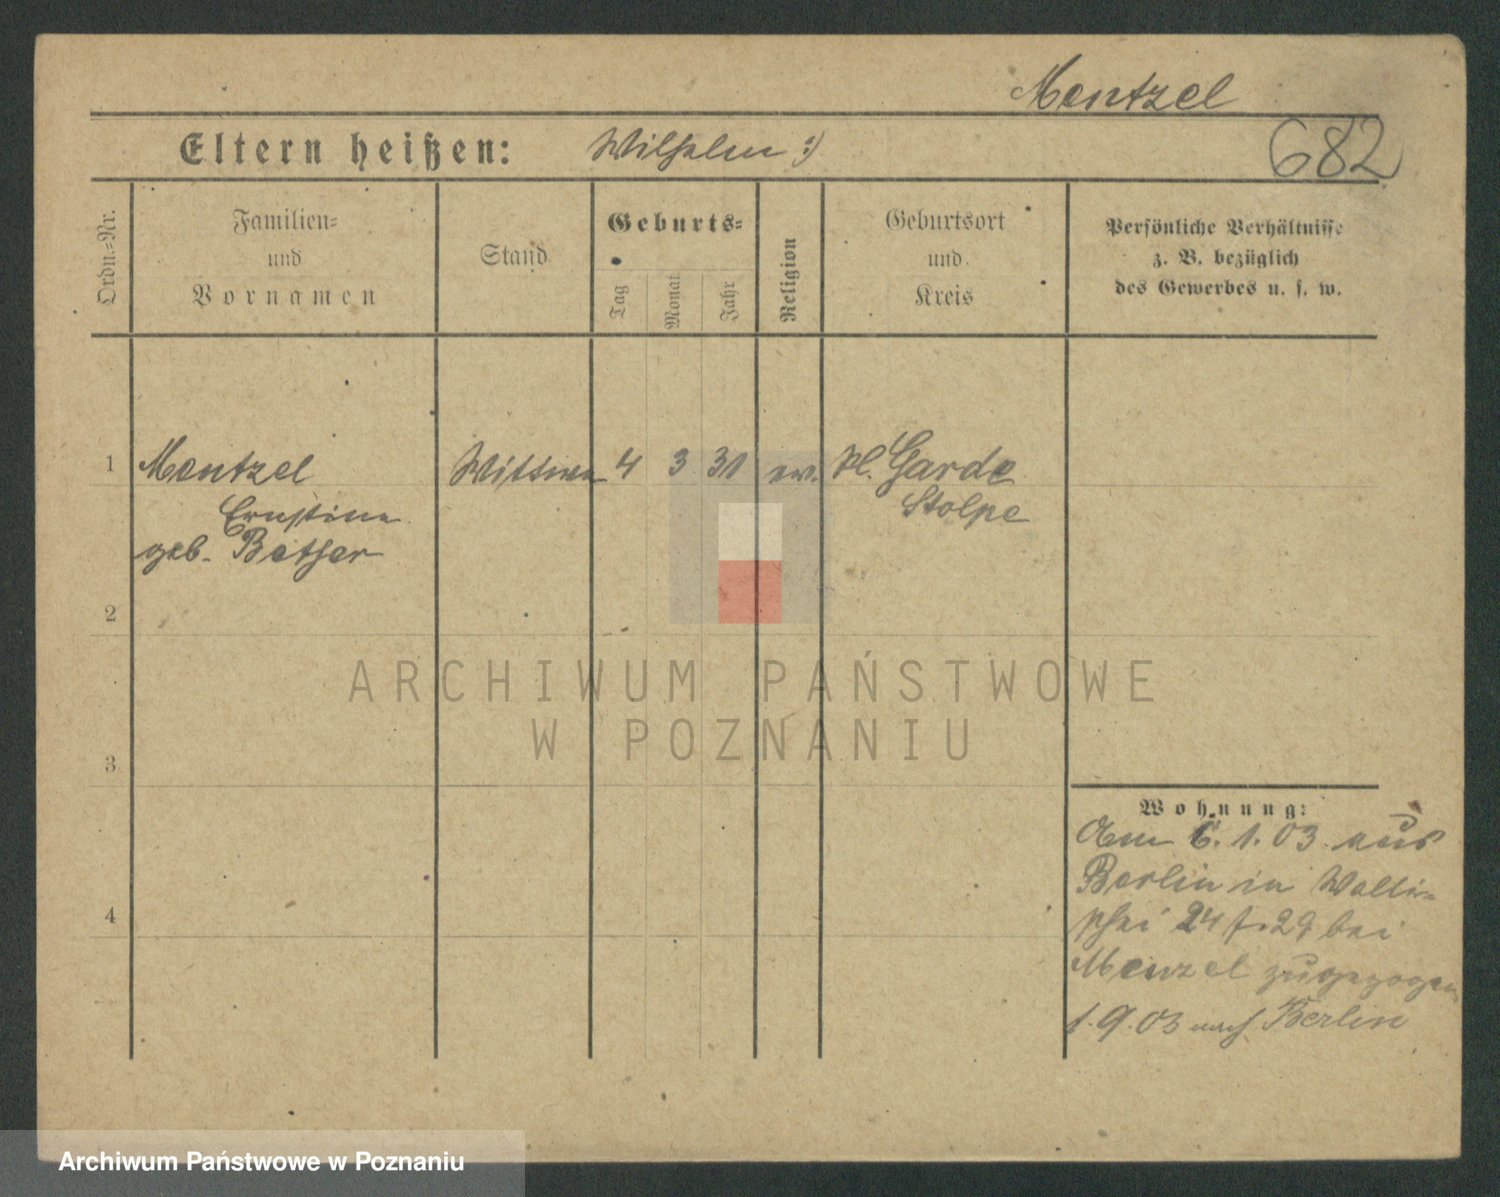 Mentzel
682
Eltern heißen: Wilhelm :)
Ordn.=Nr.
Familien=
und
Vornamen
Stand
Geburts=
Tag
Monat
Jahr
Religion
Geburtsort
und
Kreis
Persönliche Verhältnisse
z. B. bezüglich
des Gewerbes u. s. w.
1 Mentzel Wittwe 4 3 31 ev. Kl. Garde
Ernstine Stolpe
geb. Bethser
2
3
4
Wohnung:
Am 6. 1. 03 aus
Berlin in Walli-
schei 24 f. 29 bei
Menzel zugezogen
1. 9. 03 nach Berlin
ARCHIWUM PAŃSTWOWE
W POZNANIU
Archiwum Państwowe w Poznaniu